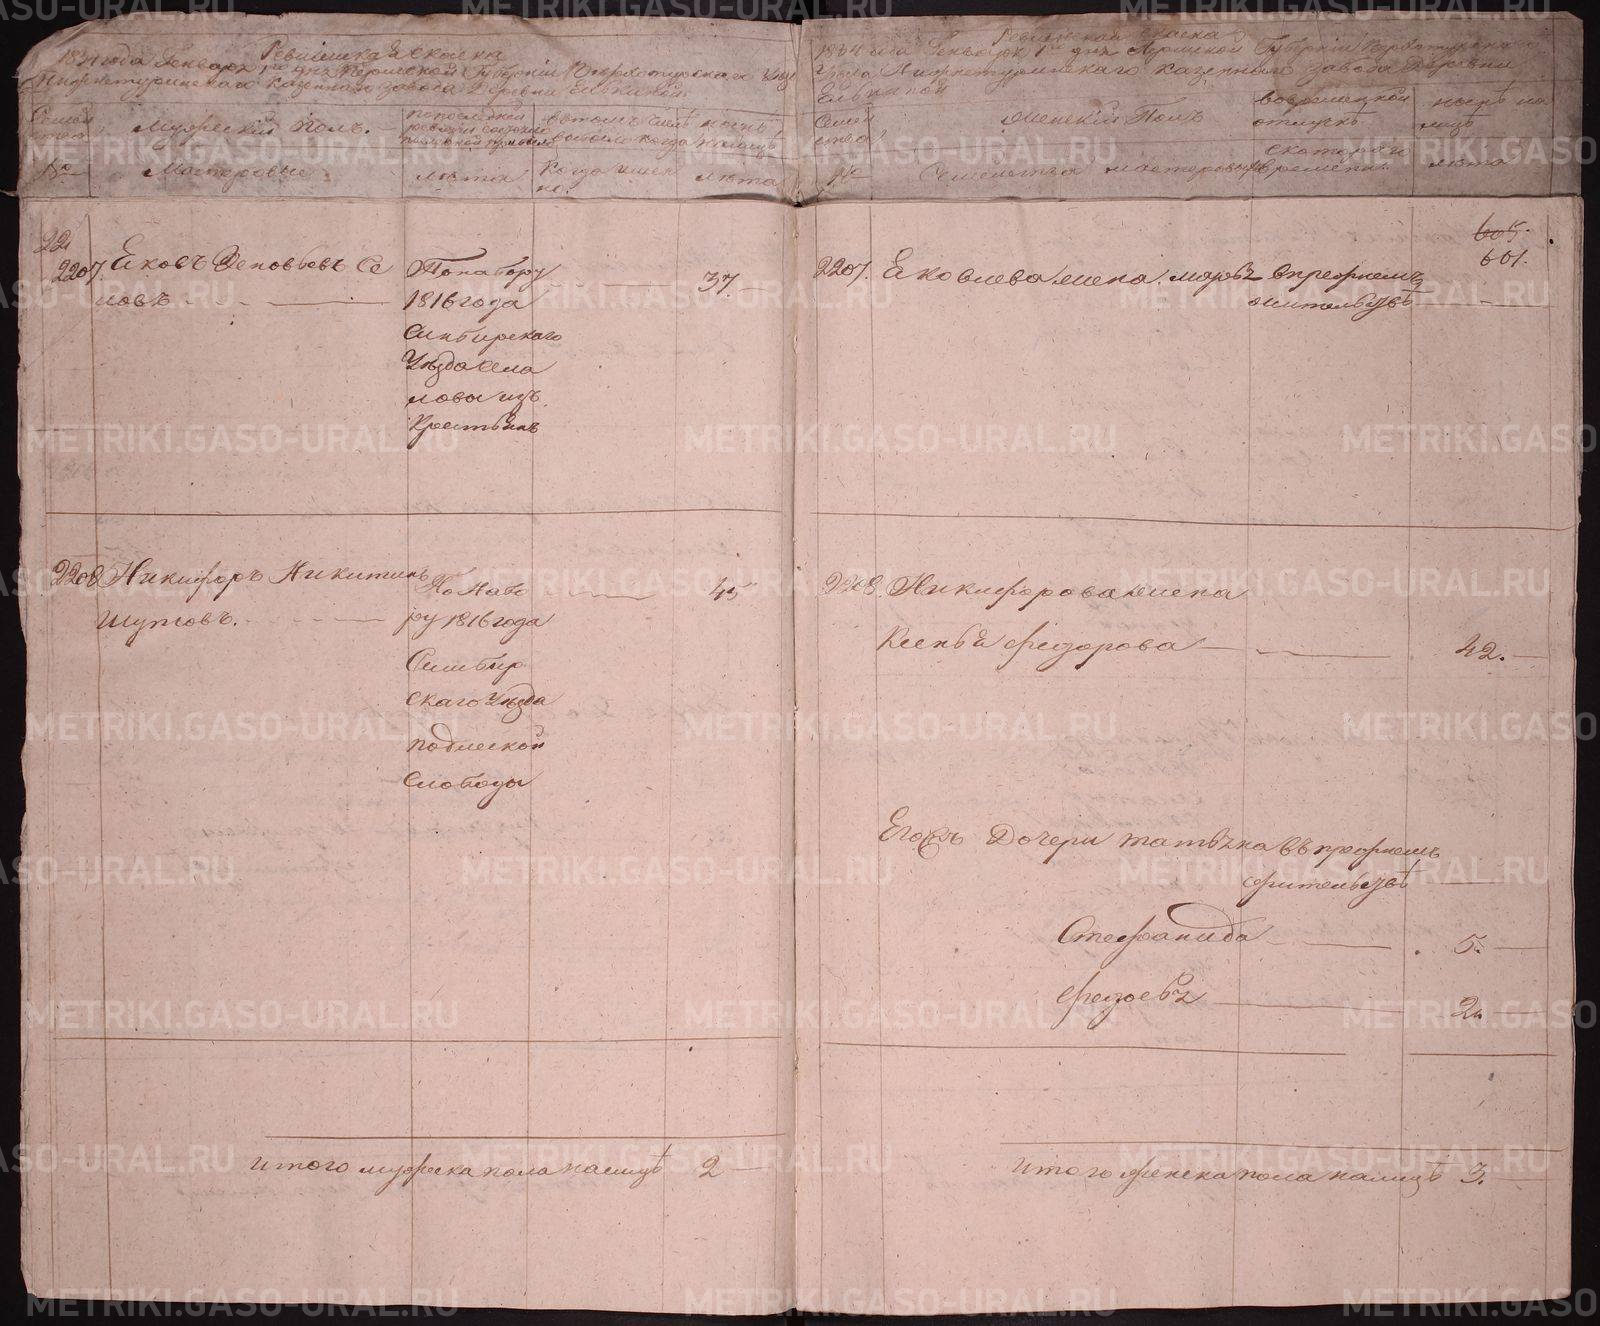 Ревижская Скаска
1834 года Генваря 1го дня Пермской Губернии Верхотурскаго Уезда
Нижнетуринскаго казеннаго завода Деревни Елькиной
Семьи
Мужеский полъ.
по последней ревизии состояло
изъ того числа выбыло
ныне на лицо
№
Мастеровые
лета
Когда имен но.
лета
22
2207
Яковъ Зеновьевъ Се
ловъ
По набору
1816 года
Синбирскаго
Уѣзда села
ловы изъ
Крестьянъ
37.
2208
Никифоръ Никитинъ
Шутовъ.
По Набо
ру 1816 года
Симбир
скаго Уѣзда
подлеской
Слободы
45
итого мужеска пола налицѣ 2
Ревижская Скаска
1834 года Генваря 1го дня Пермской Губернии Верхотурскаго
Уезда Нижнетуринскаго казеннаго завода Деревни
Елькиной
Семей ства
Женский Полъ
во временной отлучке
ныне на лицѣ
№
Семейства мастеровых
с котораго времени.
лета
605.
601.
2207.
Яковлева жена марья в прежнемъ
жительствѣ
2208.
Никифорова жена
Ксенья Федорова
42.
Его жъ Дочери татьяна въ прежнемъ
жительствѣ
Стефанида
5.
Федосья
2.
итого женска пола налицѣ 3.
METRIKI.GASO-URAL.RU